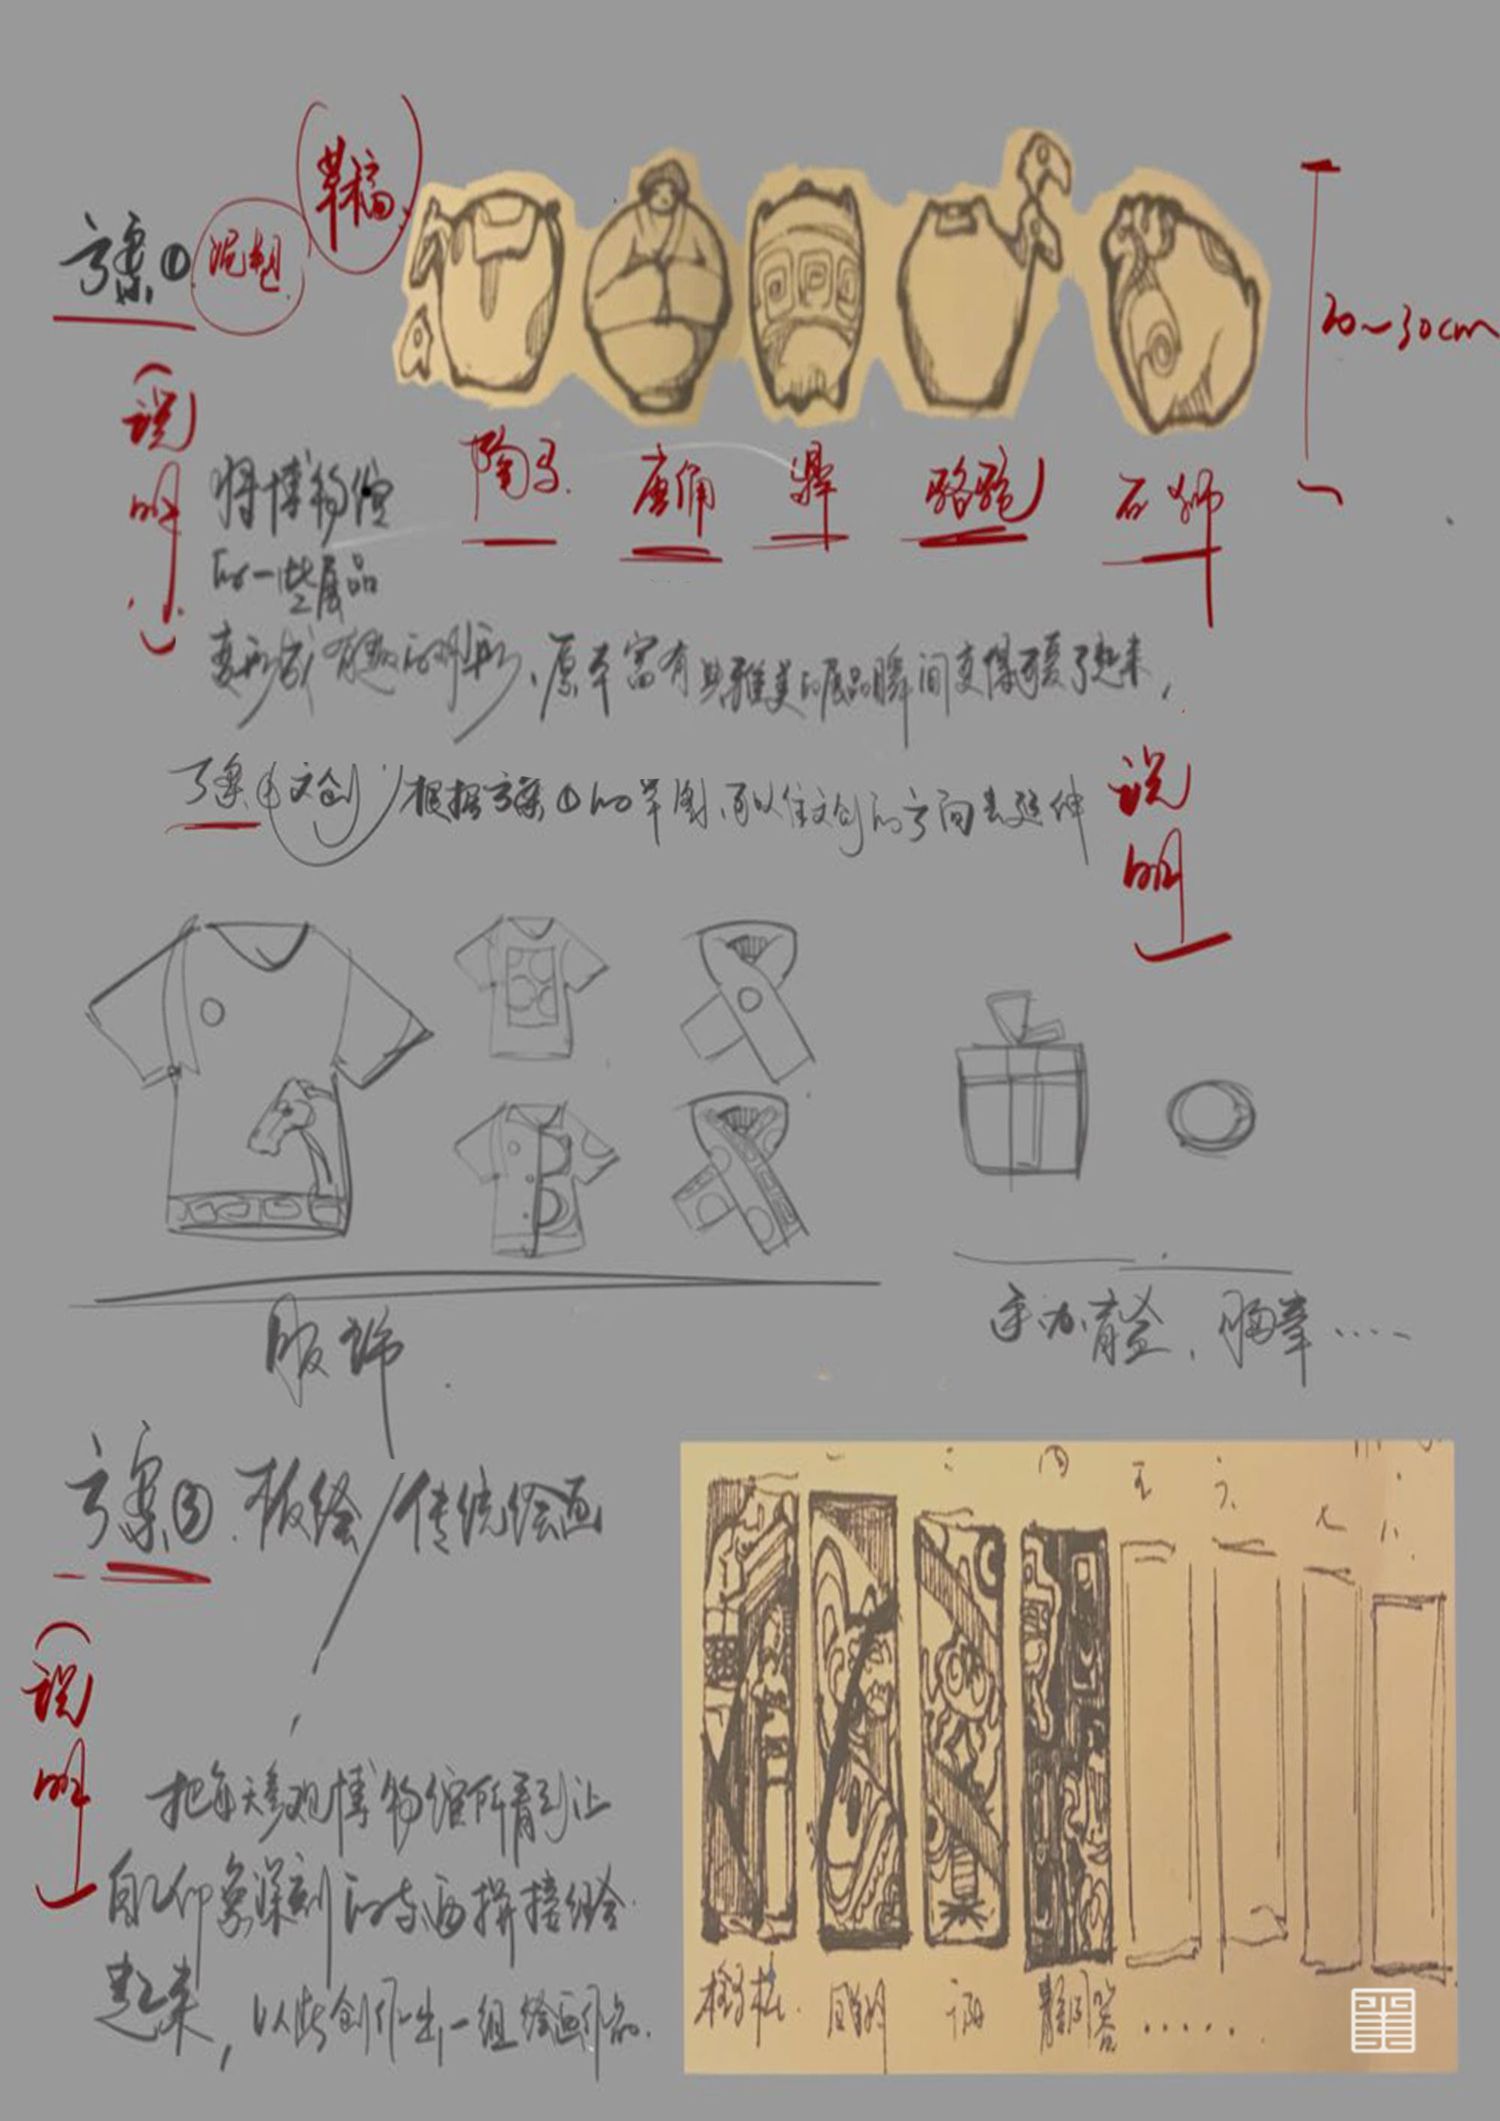 草稿
方案① 泥塑
20~30cm
陶马 唐俑 鼎 骆驼 石狮
(说明)
将博物馆
的一些展品
变形成有趣的外形,原本富有典雅美的展品瞬间变得可爱了起来,
方案②(文创)根据方案①的草图,可以往文创的方向去延伸
说明
服饰
手办盲盒,胸章……
方案③.板绘/传统绘画
(说明)
把每天参观博物馆所看到让
自己印象深刻的东西拼接组合
起来,以此创作出一组绘画作品.
一 二 三 四 五 六 七 八
拴马桩